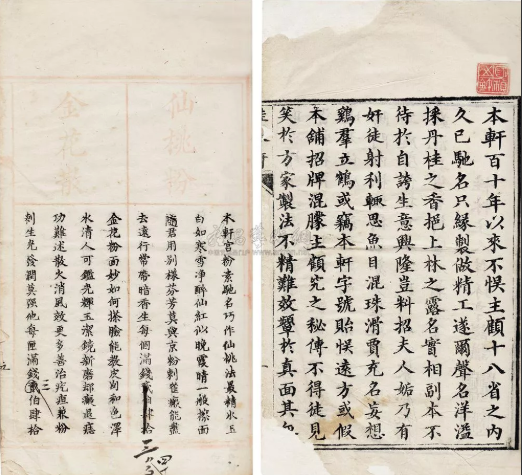 本軒百十年以來不悞主顧十八省之內
久已馳名只緣製做精工遂爾聲名洋溢
採丹桂之香挹上林之露名實相副本不
待於自誇生意興隆豈料招夫人妬乃有
奸徒射利輒思魚目混珠滑賈充名妄想
鷄羣立鶴或竊本軒字號貽悞遠方或假
本舖招牌混朦主顧究之秘傳不得徒見
笑於方家製法不精難效顰於真面其
仙桃粉
本軒宮粉素馳名巧作仙桃法最精水玉
白如寒雪淨醉仙紅似晚霞晴一般擦面
隨君用別樣芬芳莫與京粉刺莖癜能盡
去遠行常帶暗香生每個滿錢肆拾
金花
金花粉面妙如何搽臉能教皮肉和色澤
水清人可鑑光輝玉潔鏡新磨却癜退癋
功難述散火消風效更多善治疙瘩兼粉
刺生光發潤莫强他每匣滿錢貳伯肆拾